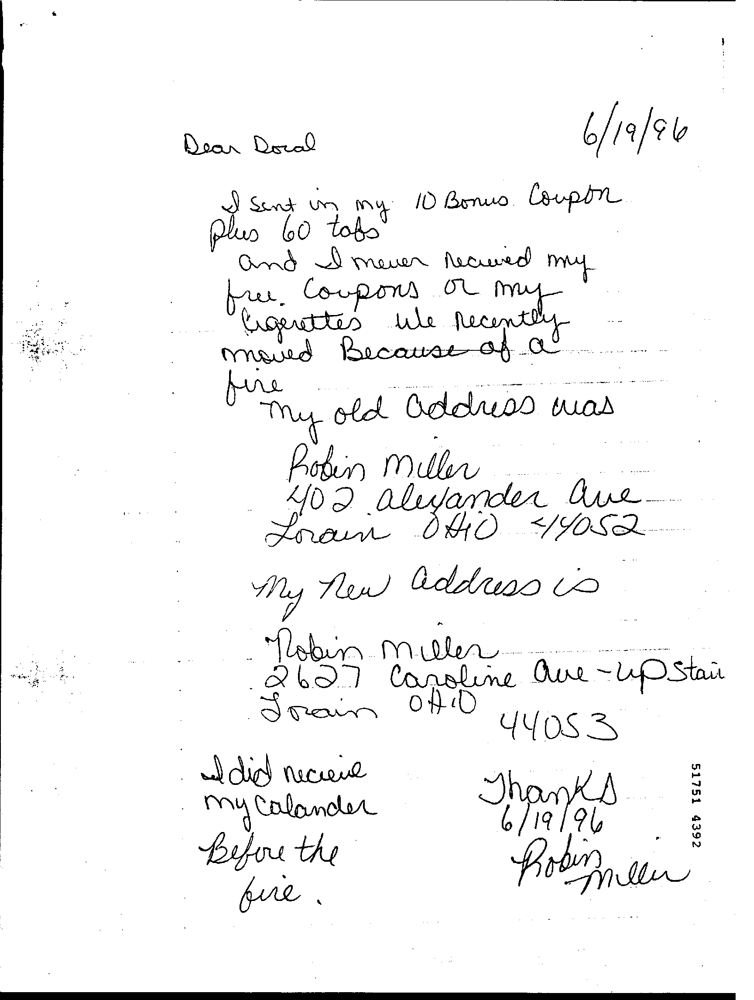 6/19/96
Dear Doral
I sent in my 10 Bonus Coupon
plus 60 tabs
and I never recieved my
free. Coupons or my
Cigerettes We Recently
moved Because of a
fire
My old address was
Robin Miller
402 alexander Ave
Lorain OHIO 44052
My New address is
Robin Miller
2627 Caroline Ave - upstair
Lorain OHIO
44053
I did recieve
my Calander
Before the
fire.
Thanks
6/19/96
Robin
Miller
51751 4392